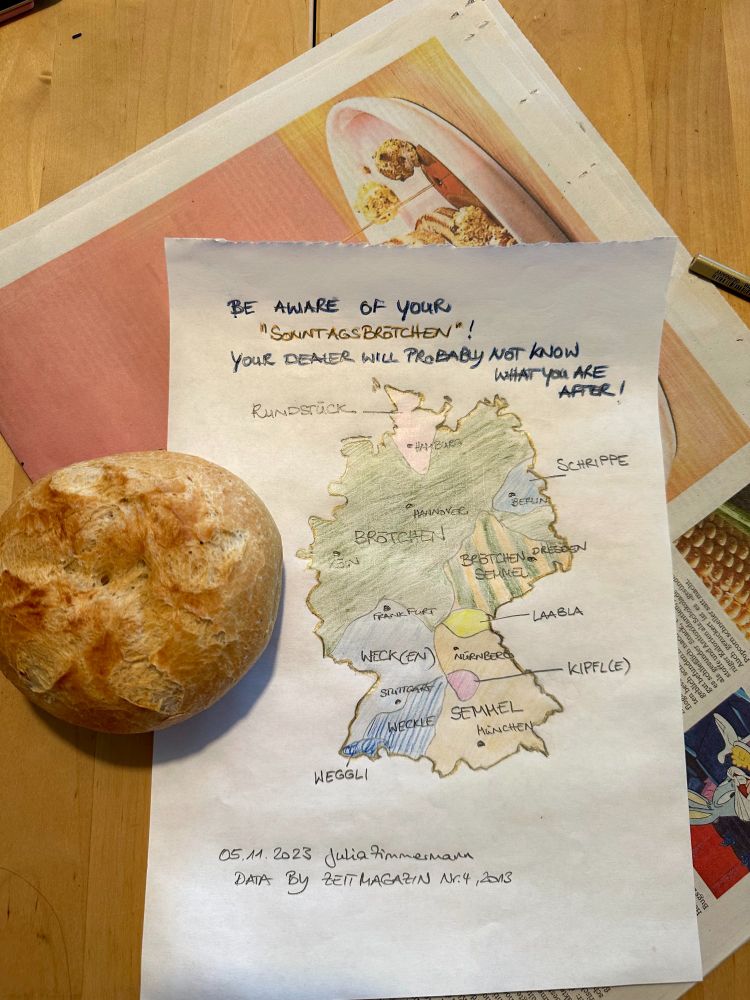 BE AWARE OF YOUR
"SONNTAGSBRÖTCHEN"!
YOUR DEALER WILL PROBABLY NOT KNOW
WHAT YOU ARE
AFTER!
RUNDSTÜCK
HAMBURG
SCHRIPPE
BERLIN
HANNOVER
BRÖTCHEN
BRÖTCHEN
SEMMEL
DRESDEN
FRANKFURT
LAABLA
WECK(EN)
NÜRNBERG
KIPFL(E)
STUTTGART
SEMMEL
WECKLE
MÜNCHEN
WEGGLI
05.11.2023 Julia Zimmermann
DATA BY ZEITMAGAZIN Nr. 4, 2013